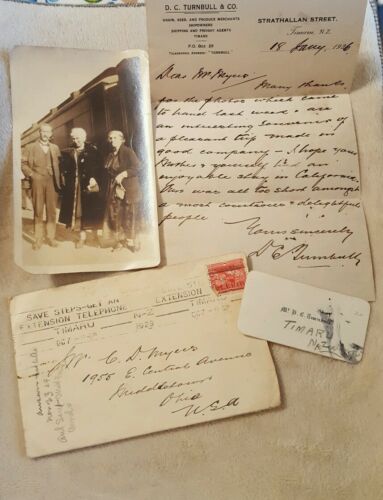 D. C. TURNBULL & CO.
GRAIN, SEED, AND PRODUCE MERCHANTS
SHIPOWNERS
SHIPPING AND FREIGHT AGENTS
TIMARU
P.O. BOX 29
TELEGRAPHIC ADDRESS: "TURNBULL"
STRATHALLAN STREET,
Timaru, N.Z.
18 Jany. 1926
Dear Mr Myers.
Many thanks
for the photos which came
to hand last week & are
an interesting souvenir of
a pleasant trip made in
good company — I hope your
Mother & yourself had an
enjoyable stay in California.
Ours was all too short amongst
a most courteous & delightful
people
Yours sincerely
D C Turnbull
SAVE STEPS-GET AN
EXTENSION TELEPHONE
TIMARU
EXTENSION
TIMARU
1929
Mr C D. Myers
1955 E. Central Avenue
Middletown
Ohio
U.S.A
Mr D. C. Turnbull
TIMARU
N.Z.